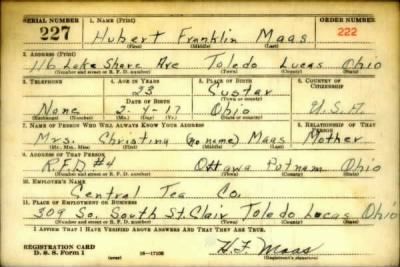 SERIAL NUMBER 1. NAME (Print) ORDER NUMBER
227 Hubert Franklin Maas 222
(First) (Middle) (Last)
2. ADDRESS (Print)
116 Lake Shore Ave Toledo Lucas Ohio
(Number and street or R. F. D. number) (Town) (County) (State)
3. TELEPHONE 4. AGE IN YEARS 5. PLACE OF BIRTH 6. COUNTRY OF CITIZENSHIP
23 Custar
DATE OF BIRTH (Town or county)
None 2-4-17 Ohio U.S.A.
(Exchange) (Number) (Mo.) (Day) (Yr.) (State or country)
7. NAME OF PERSON WHO WILL ALWAYS KNOW YOUR ADDRESS 8. RELATIONSHIP OF THAT PERSON
Mrs. Christina (no name) Maas Mother
(Mr., Mrs., Miss) (First) (Middle) (Last)
9. ADDRESS OF THAT PERSON
R.F.D #4 Ottawa Putnam Ohio
(Number and street or R. F. D. number) (Town) (County) (State)
10. EMPLOYER'S NAME
Central Tea Co.
11. PLACE OF EMPLOYMENT OR BUSINESS
309 So. South St. Clair Toledo Lucas Ohio
(Number and street or R. F. D. number) (Town) (County) (State)
I AFFIRM THAT I HAVE VERIFIED ABOVE ANSWERS AND THAT THEY ARE TRUE.
REGISTRATION CARD
D. S. S. Form 1 (over) H.F. Maas
(Registrant's signature)